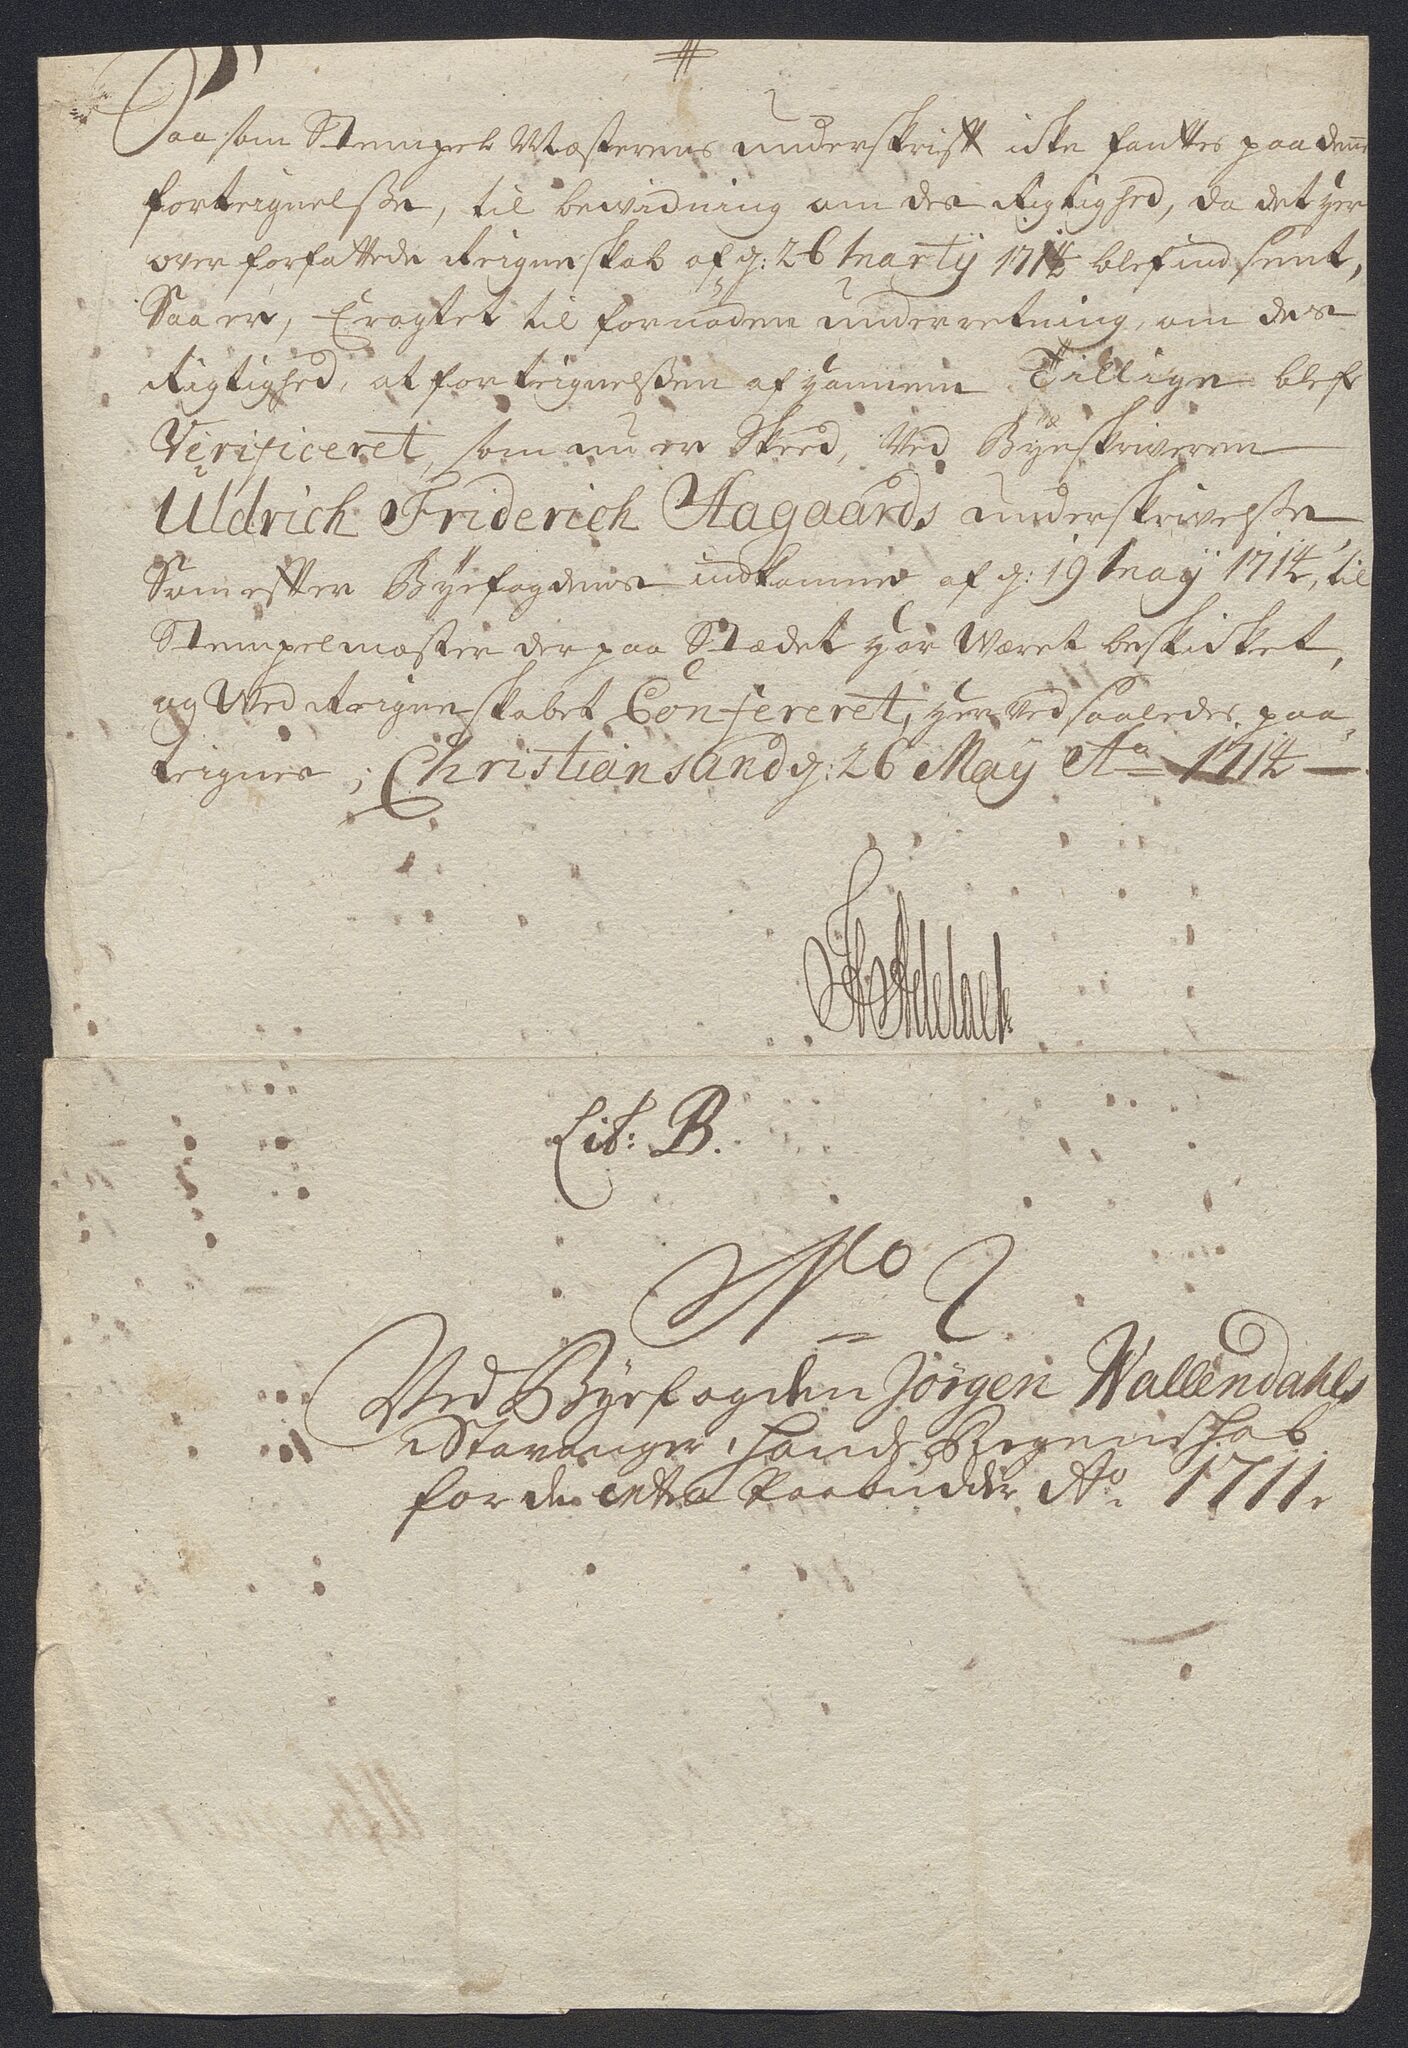 Saasom Stempel Mæsterens underskrift icke fantes paa denne
forteignelsse, til bewidning om des Rigtighed, da det her
over forfattede Reigneskab af d: 26 Marty 1714 blef indsent,
Saa er, Eragtet til fornöden underretning, om des
Rigtighed, at forteignelssen af hannem Tillige blef
Verificeret, som nu er Skeed, Ved Byeskriveren
Uldrich Friderich Aagaards underskrivelsse
Som efter Byefogdens indkomme af d: 19 May 1714, til
Stempelmæster der paa Stædet har Været beskicket,
og Ved Reigneskabet Confereret, her Ved saaledes paa
teignes, Christiansand d: 26 May Ao 1714
Adelaer
Lit: B.
No 2
Ved Byefogden Jörgen Wallendahls
i Stavanger, hands Regenskab
for de extra Paabudder Ao 1711